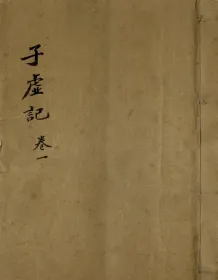 子虚記
卷一